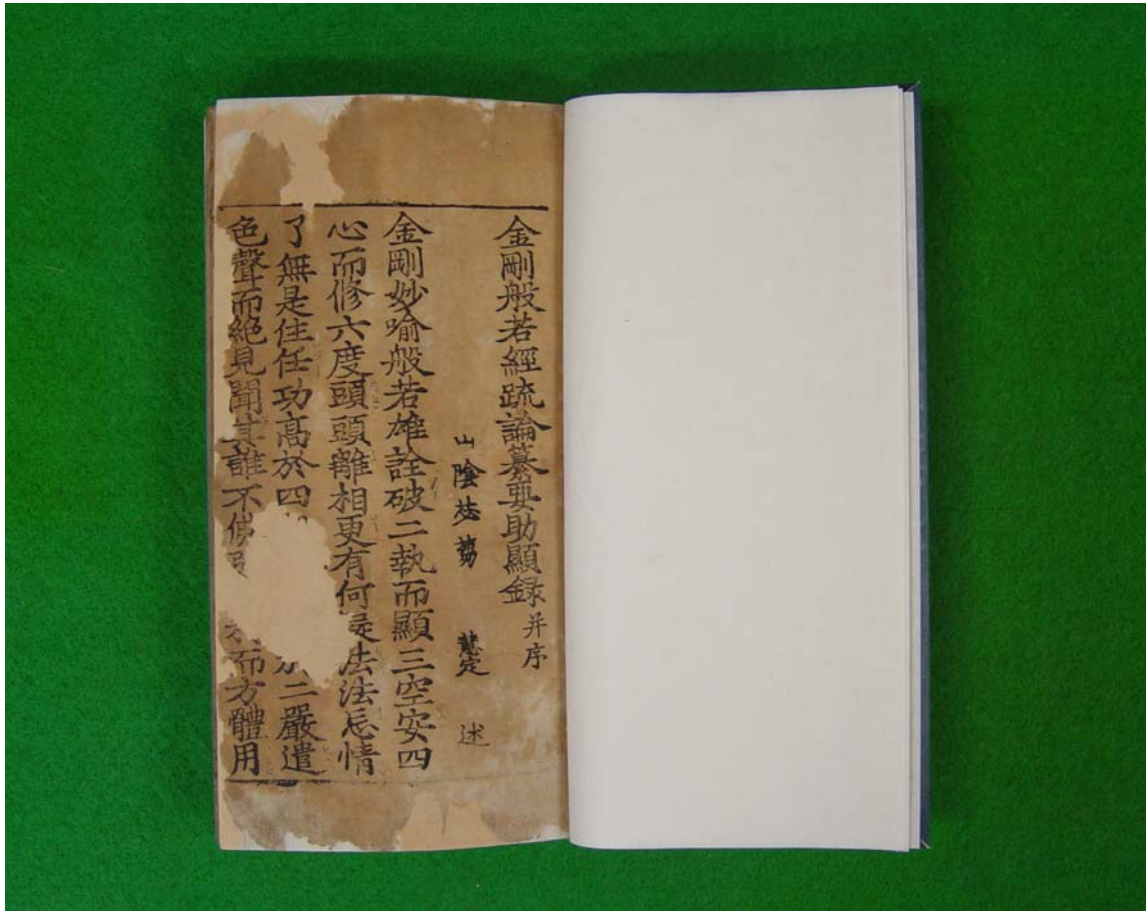 金剛般若經疏論纂要助顯録 并序
山陰 慧定 述
金剛妙喻般若雄詮破二執而顯三空安四
心而修六度頭頭離相更有何 法法忘情
了無是住任功高於四 二嚴遣
色聲而絶見聞其誰不佛 而方體用